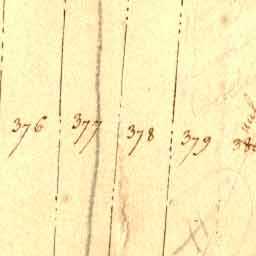 376 377 378 379